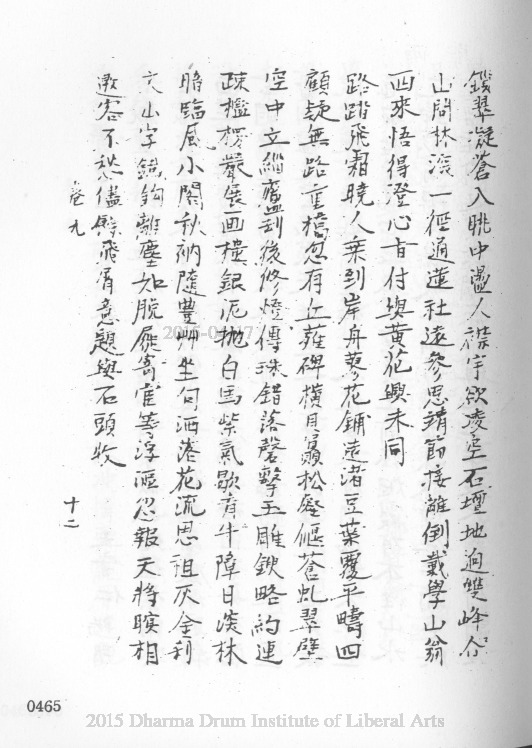 鏡翠凝蒼入眺中盪人襟宇欲凌空石壇地迥雙峰合
山閣林深一徑通蓮社遠參思靖節接離倒載學山翁
西來悟得澄心旨付與黃花興未同
路踏飛霜曉人乘到岸舟蓼花鋪遠渚豆葉覆平疇四
顧疑無路重橋忽有丘蘚碑橫贔屭松壑偃蒼虬翠壁
空中立緇齋刦後修燈傳珠錯落磬擊玉雕鎪略約連
疎檻楞嚴展畫樓銀泥拋白馬紫氣歇青牛障日淡林
暗臨風小閣秋衲隨豐艸坐句洒落花流思祖灰金利
文山字鐵鉤離塵如脫屣寄宦等浮漚忽報天將暝相
邀客不愁儘餘飛屑意題與石頭收
卷九
十二
0465
2015-0
2015 Dharma Drum Institute of Liberal Arts